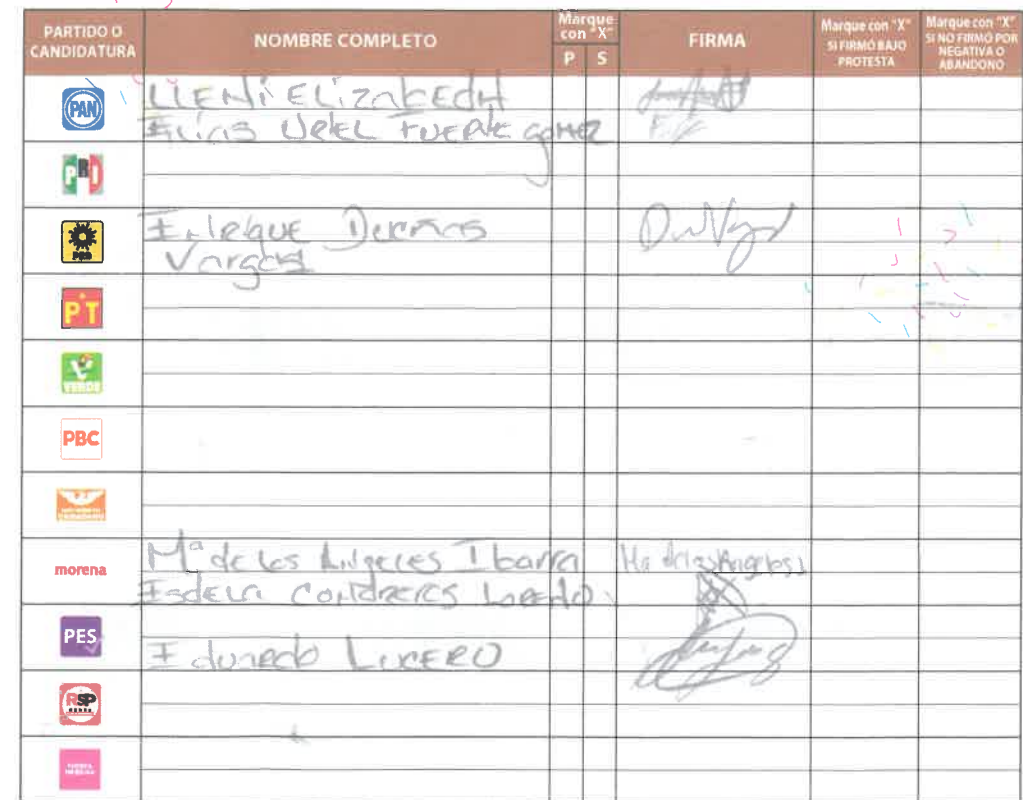 PARTIDO O CANDIDATURA
NOMBRE COMPLETO
Marque con "X"
P S
FIRMA
Marque con "X" SI FIRMÓ BAJO PROTESTA
Marque con "X" SI NO FIRMÓ POR NEGATIVA O ABANDONO
PAN
Elizabeth
Uriel Fuerte Gomez
PRI
PRD
Enrique Dueñas
Vargas
PT
VERDE
PBC
morena
Mª de los Angeles Ibarra
Ma de los Angeles I
Contreras Loredo
PES
Eduardo Lucero
RSP